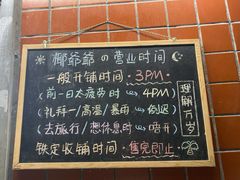 椰爷爷の营业时间
一般开铺时间:3PM.
(前一日太疲劳时→4PM)
(礼拜一/高温/暴雨→倒退)
(去旅行/想休息时→唔开)
铁定收铺时间:售完即止
理解万岁